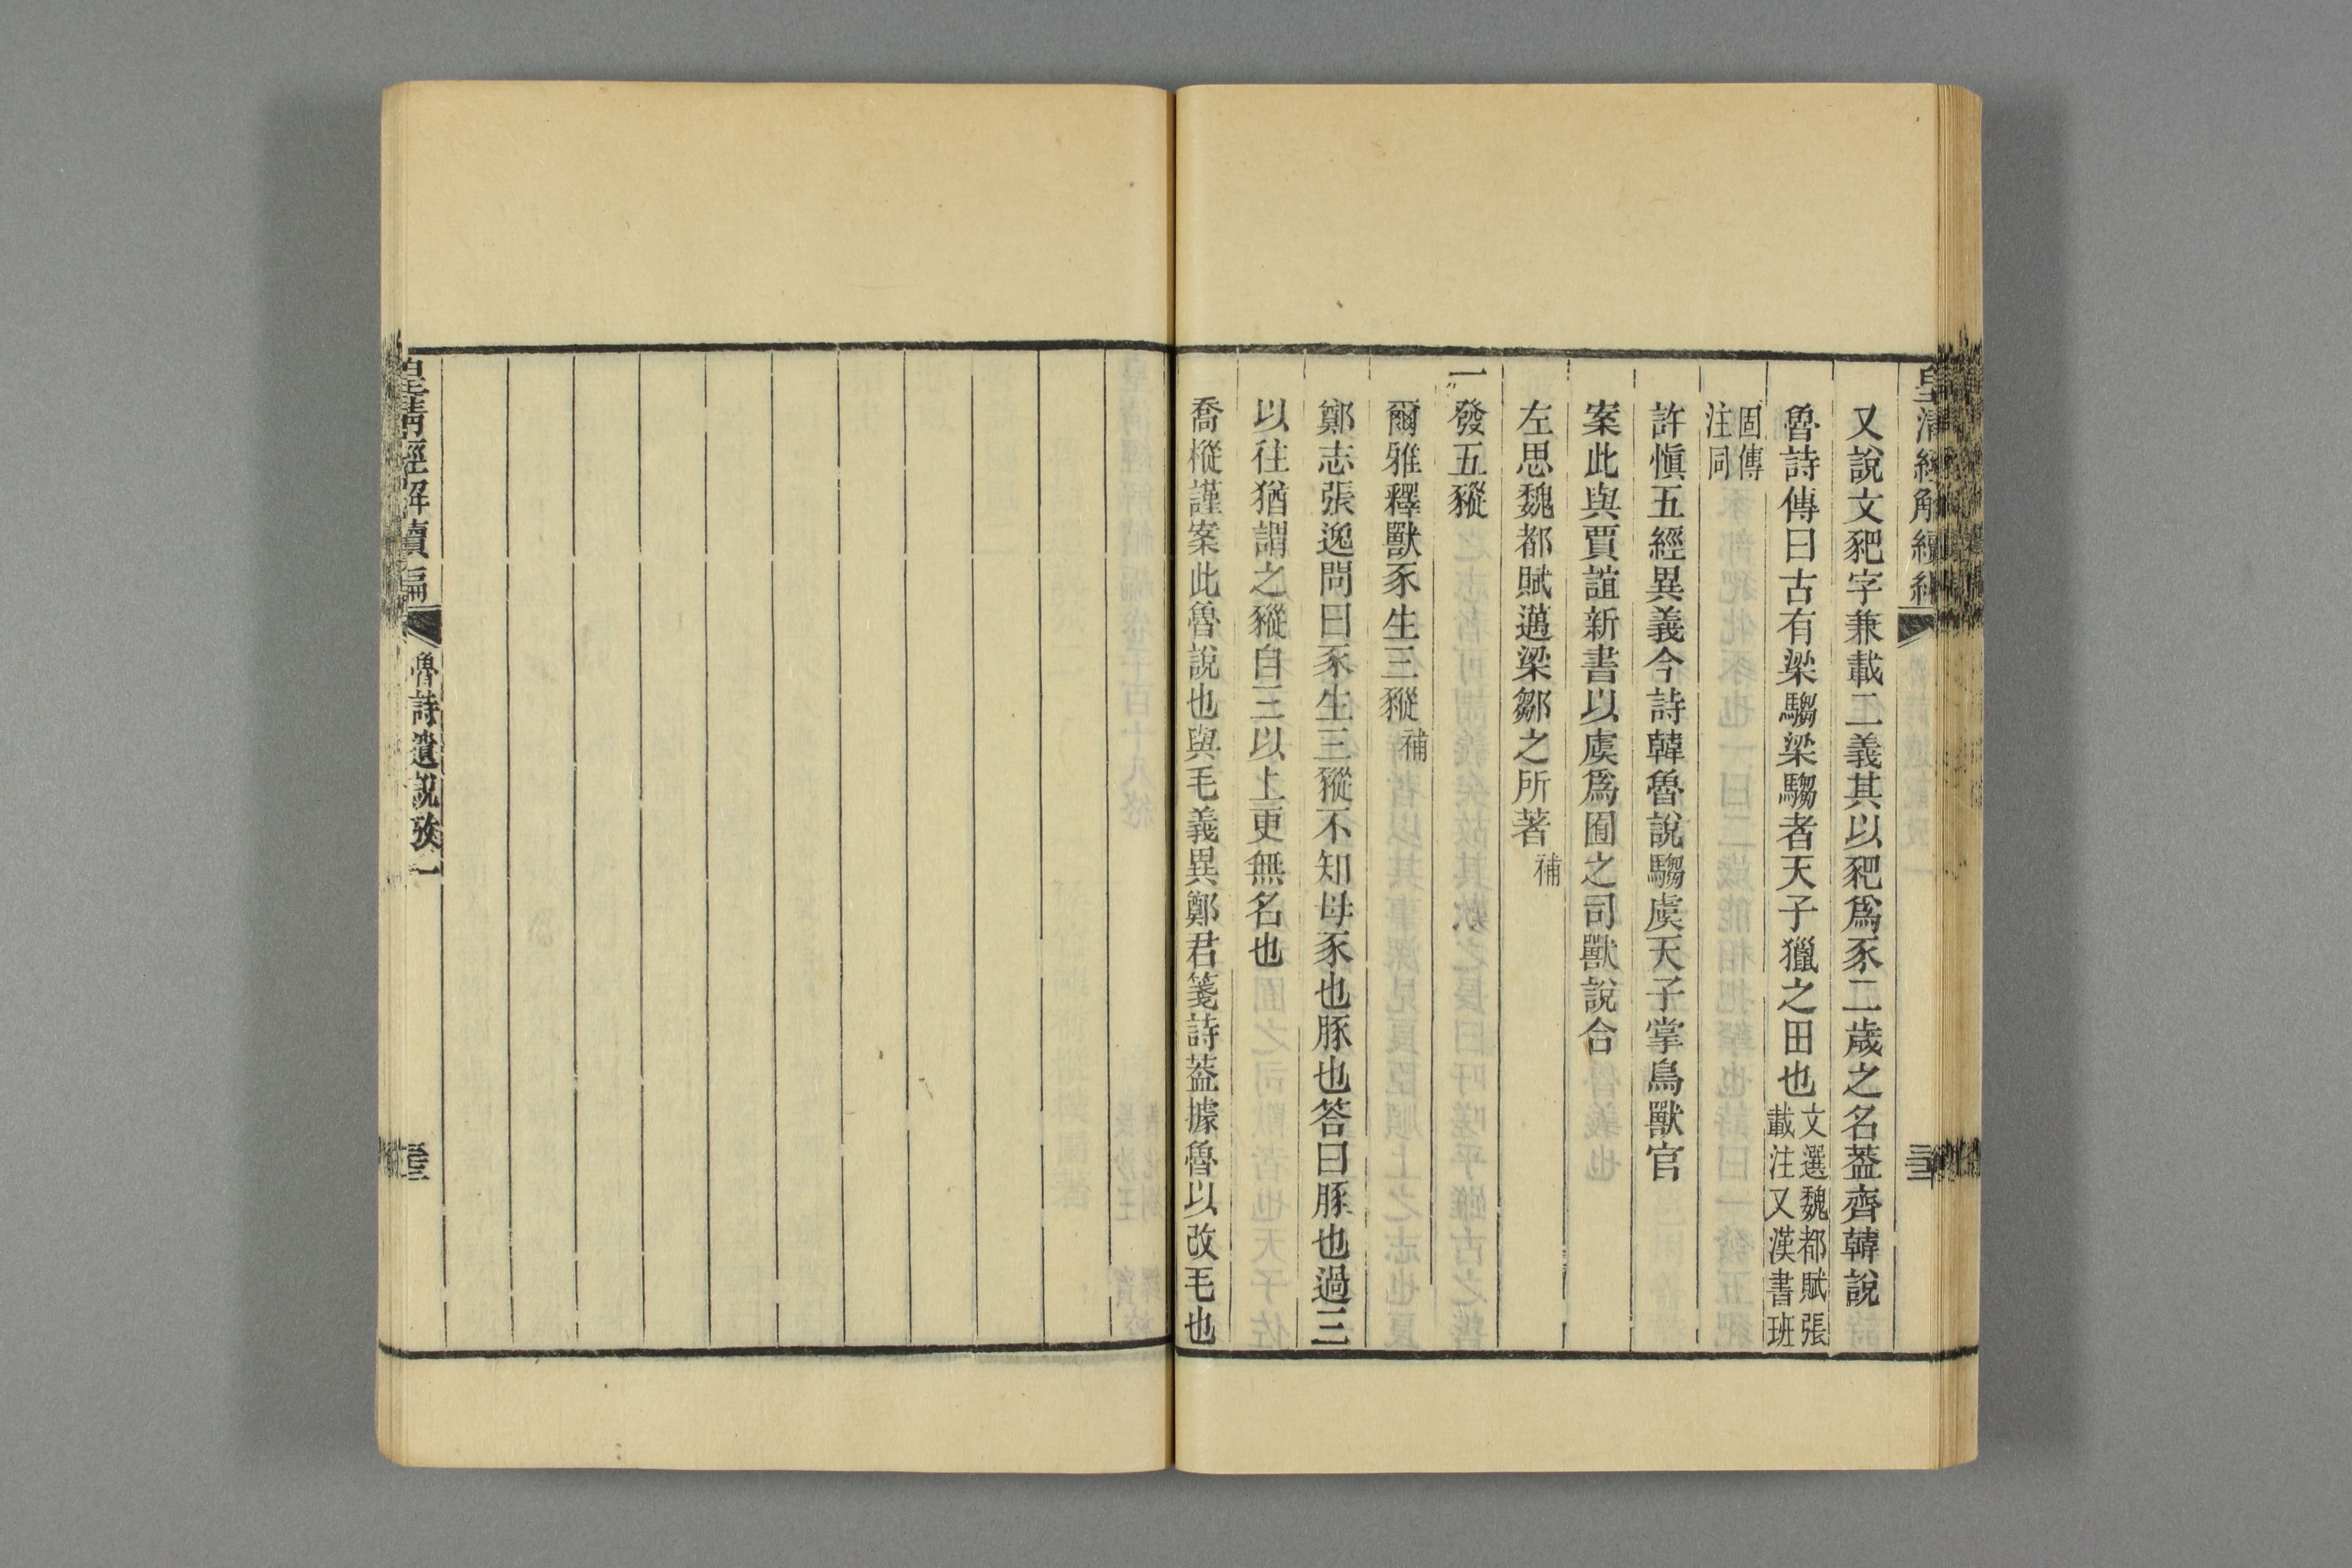 又說文豝字兼載二義其以豝爲豕二歲之名葢齊韓說
魯詩傳曰古有梁騶梁騶者天子獵之田也文選魏都賦張載注又漢書班
固傳注同
許愼五經異義今詩韓魯說騶虞天子掌鳥獸官
案此與賈誼新書以虞爲囿之司獸說合
左思魏都賦邁梁鄒之所著補
一發五豵
爾雅釋獸豕生三豵補
鄭志張逸問曰豕生三豵不知母豕也豚也答曰豚也過三
以往猶謂之豵自三以上更無名也
喬樅謹案此魯說也與毛義異鄭君箋詩葢據魯以改毛也
皇清經解續編
魯詩遺說攷一